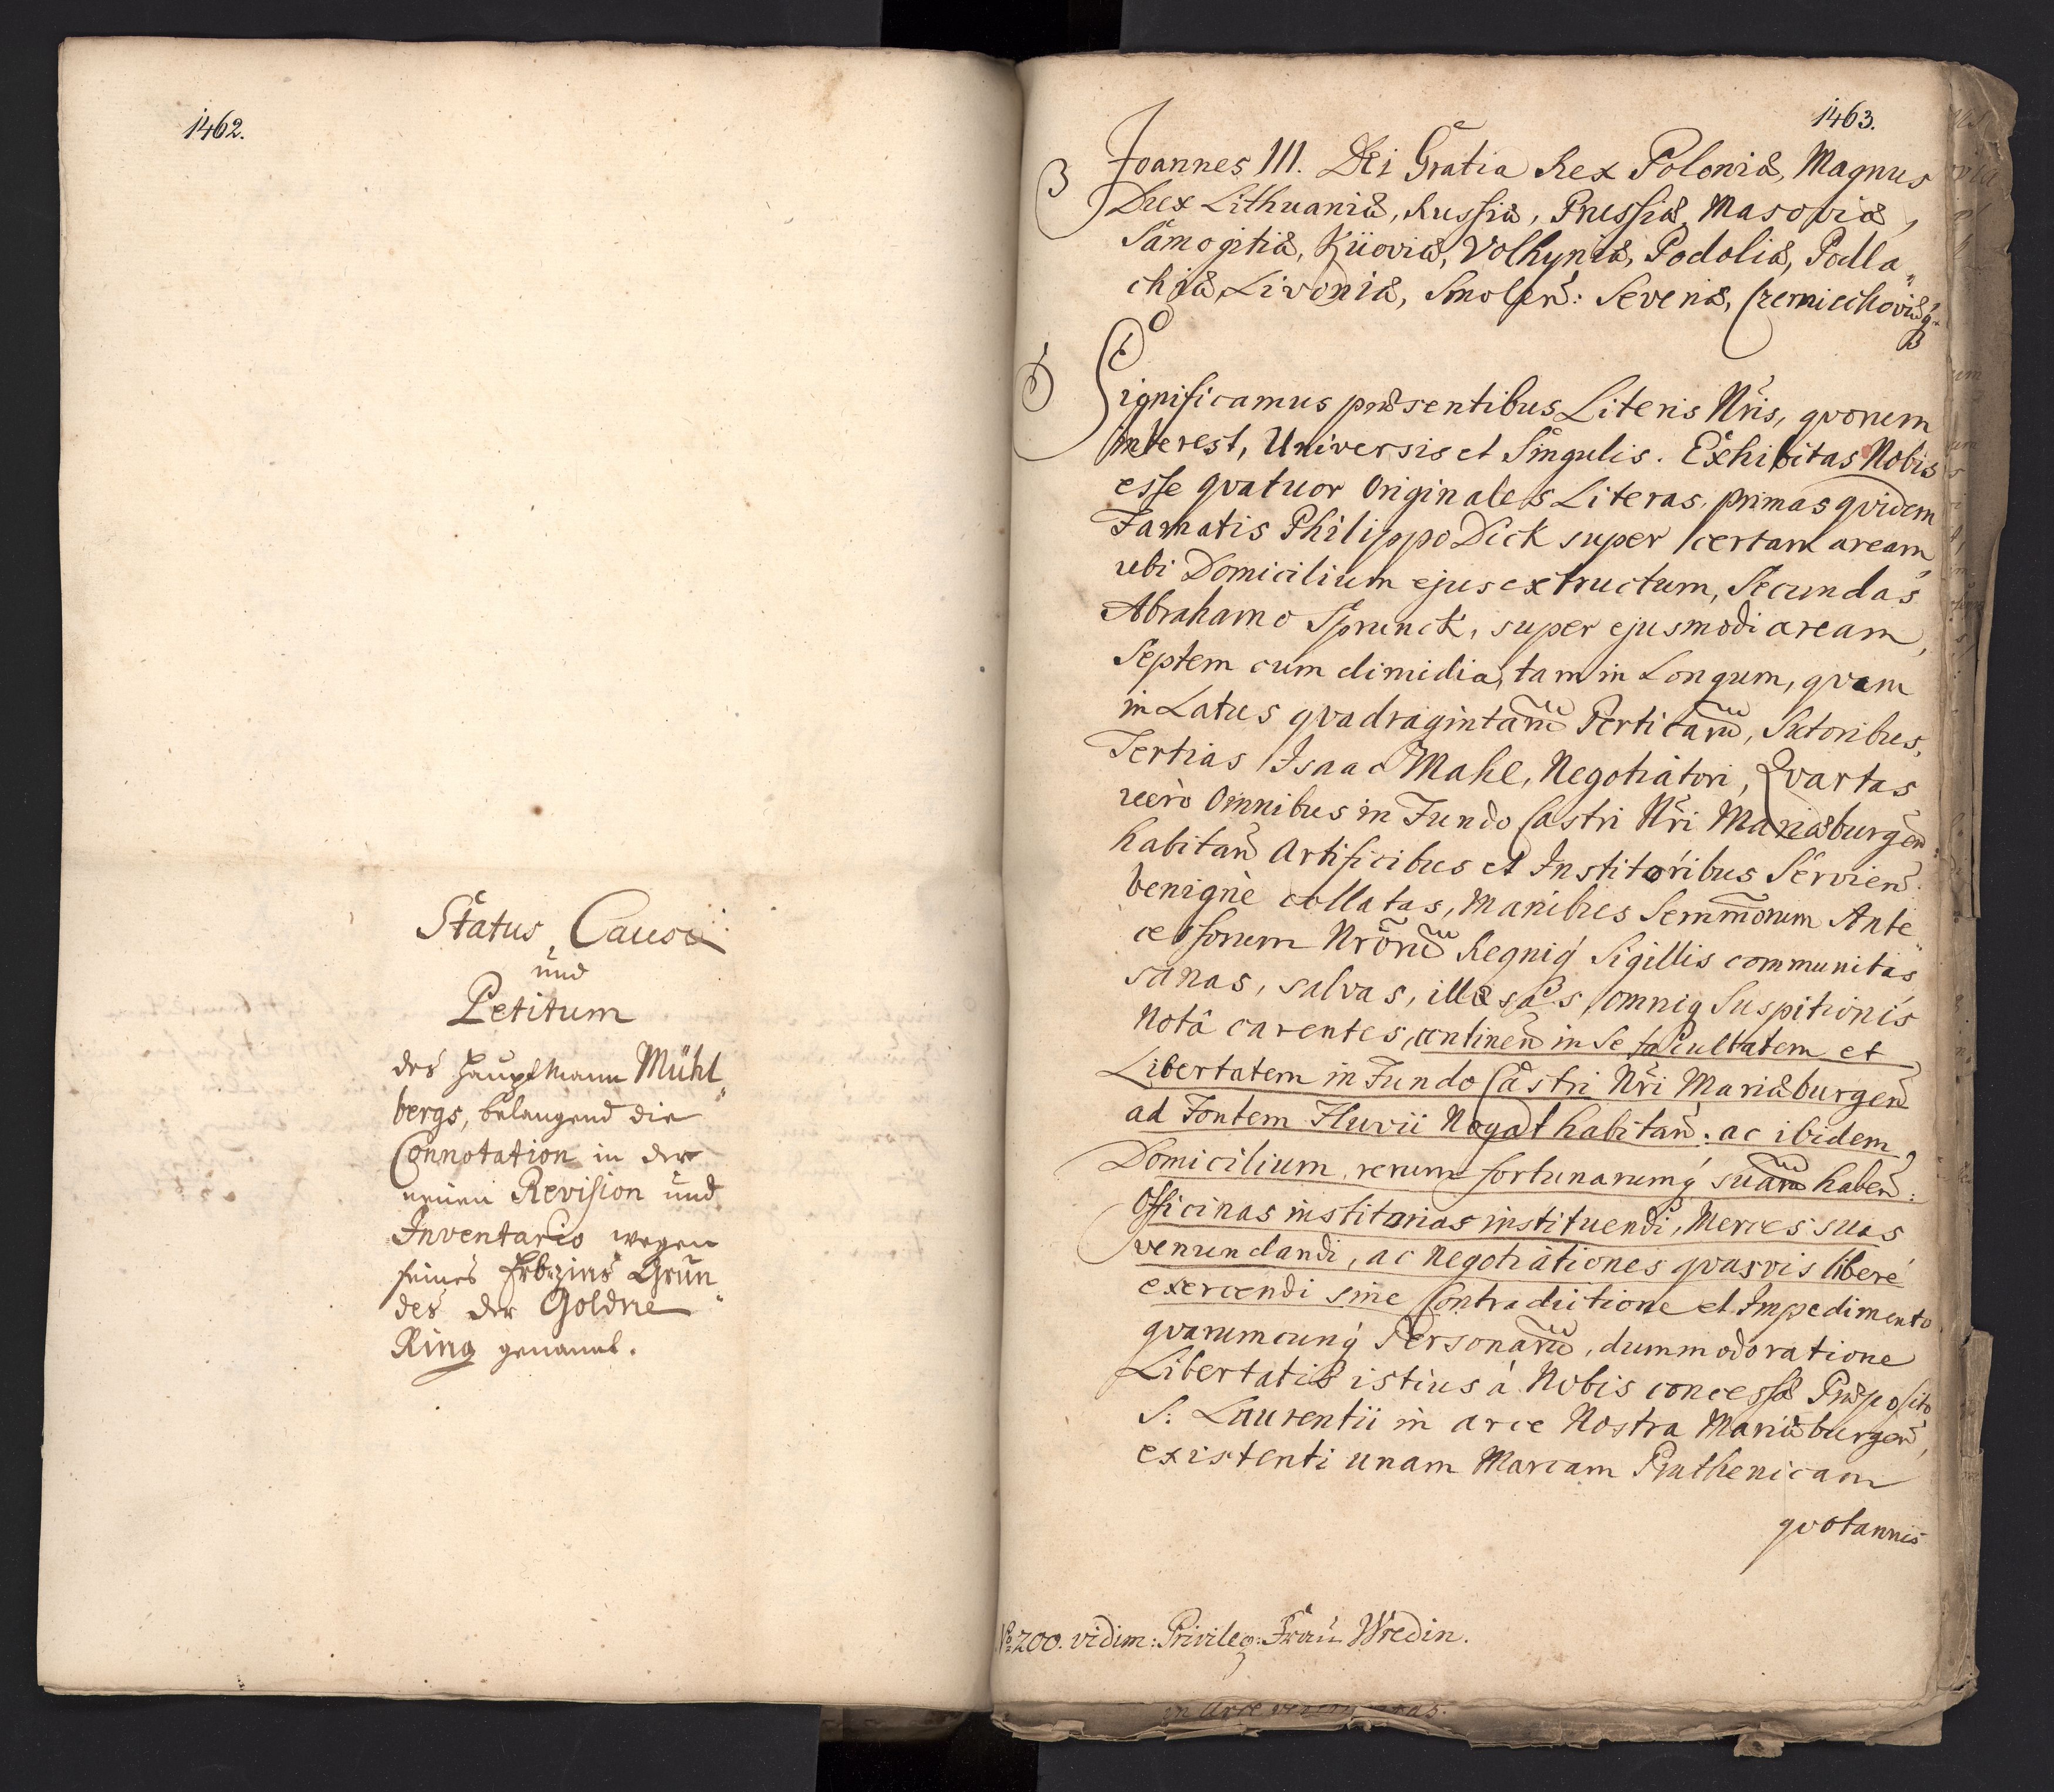 1462.
Status Causæ
und
Petitum
des Hauptmann Mühl„
bergs, belangend die
Connotation in der
neuen Revision und
Inventario wegen
seines Erbzins Grün„
des der Goldne
Ring genannt.
1463.
Joannes III. Dei Gratia Rex Poloniæ, Magnus
Dux Lithuaniæ, Russiæ, Prussiæ, Masoviæ,
Samogitiæ, Kijoviæ, Volhyniæ, Podoliæ, Podla„
chiæ, Livoniæ, Smolen̄: Severiæ, Czerniechoviæq̄
Significamus præsentibus Literis Nr̄is, qvorum
interest, Universis et Singulis. Exhibitas Nobis
esse qvatuor Originales Literas, primas qvidem
Famatis Philippo Dick super certam aream,
ubi Domicilium ejus extructum, Secundas
Abrahamo Sprunck, super ejusmodi aream,
Septem cum dimidia, tam in Longum, qvam
in Latus qvadragintarū Perticarū, Sutoribus,
Tertias Isaac Mahl, Negotiatori, Qvartas
verò Omnibus in Fundo Castri Nr̄i Mariæburgen̄
habitan̄ Artificibus et Institoribus Servien̄.
benignè collatas, Manibus Serm̄morum Ante„
cessorum Nrōrū Regniq́ Sigillis communitas,
sanas, salvas, illæsas, omniq́ Suspitionis
Notâ carentes, continen̄ in Se facultatem et
Libertatem in Fundo Castri Nr̄i Mariæburgen̄
ad Fontem Fluvii Nogat habitan̄: ac ibidem
Domicilium, rerum fortunarumq́ suarū haben̄:
Officinas institorias instituendi, Merces suas
venundandi, ac Negotiationes qvasvis liberè
exercendi sine Contradictione et Impedimento
qvarumcunq́ Personarū, dummodo ratione
Libertatis istius à Nobis concessæ Præposito
S: Laurentii in arce Nostra Mariæburgen̄,
existenti unam Marcam Pruthenicam
qvotannis
No 200. vidim: Privileg: Frau Wredin.